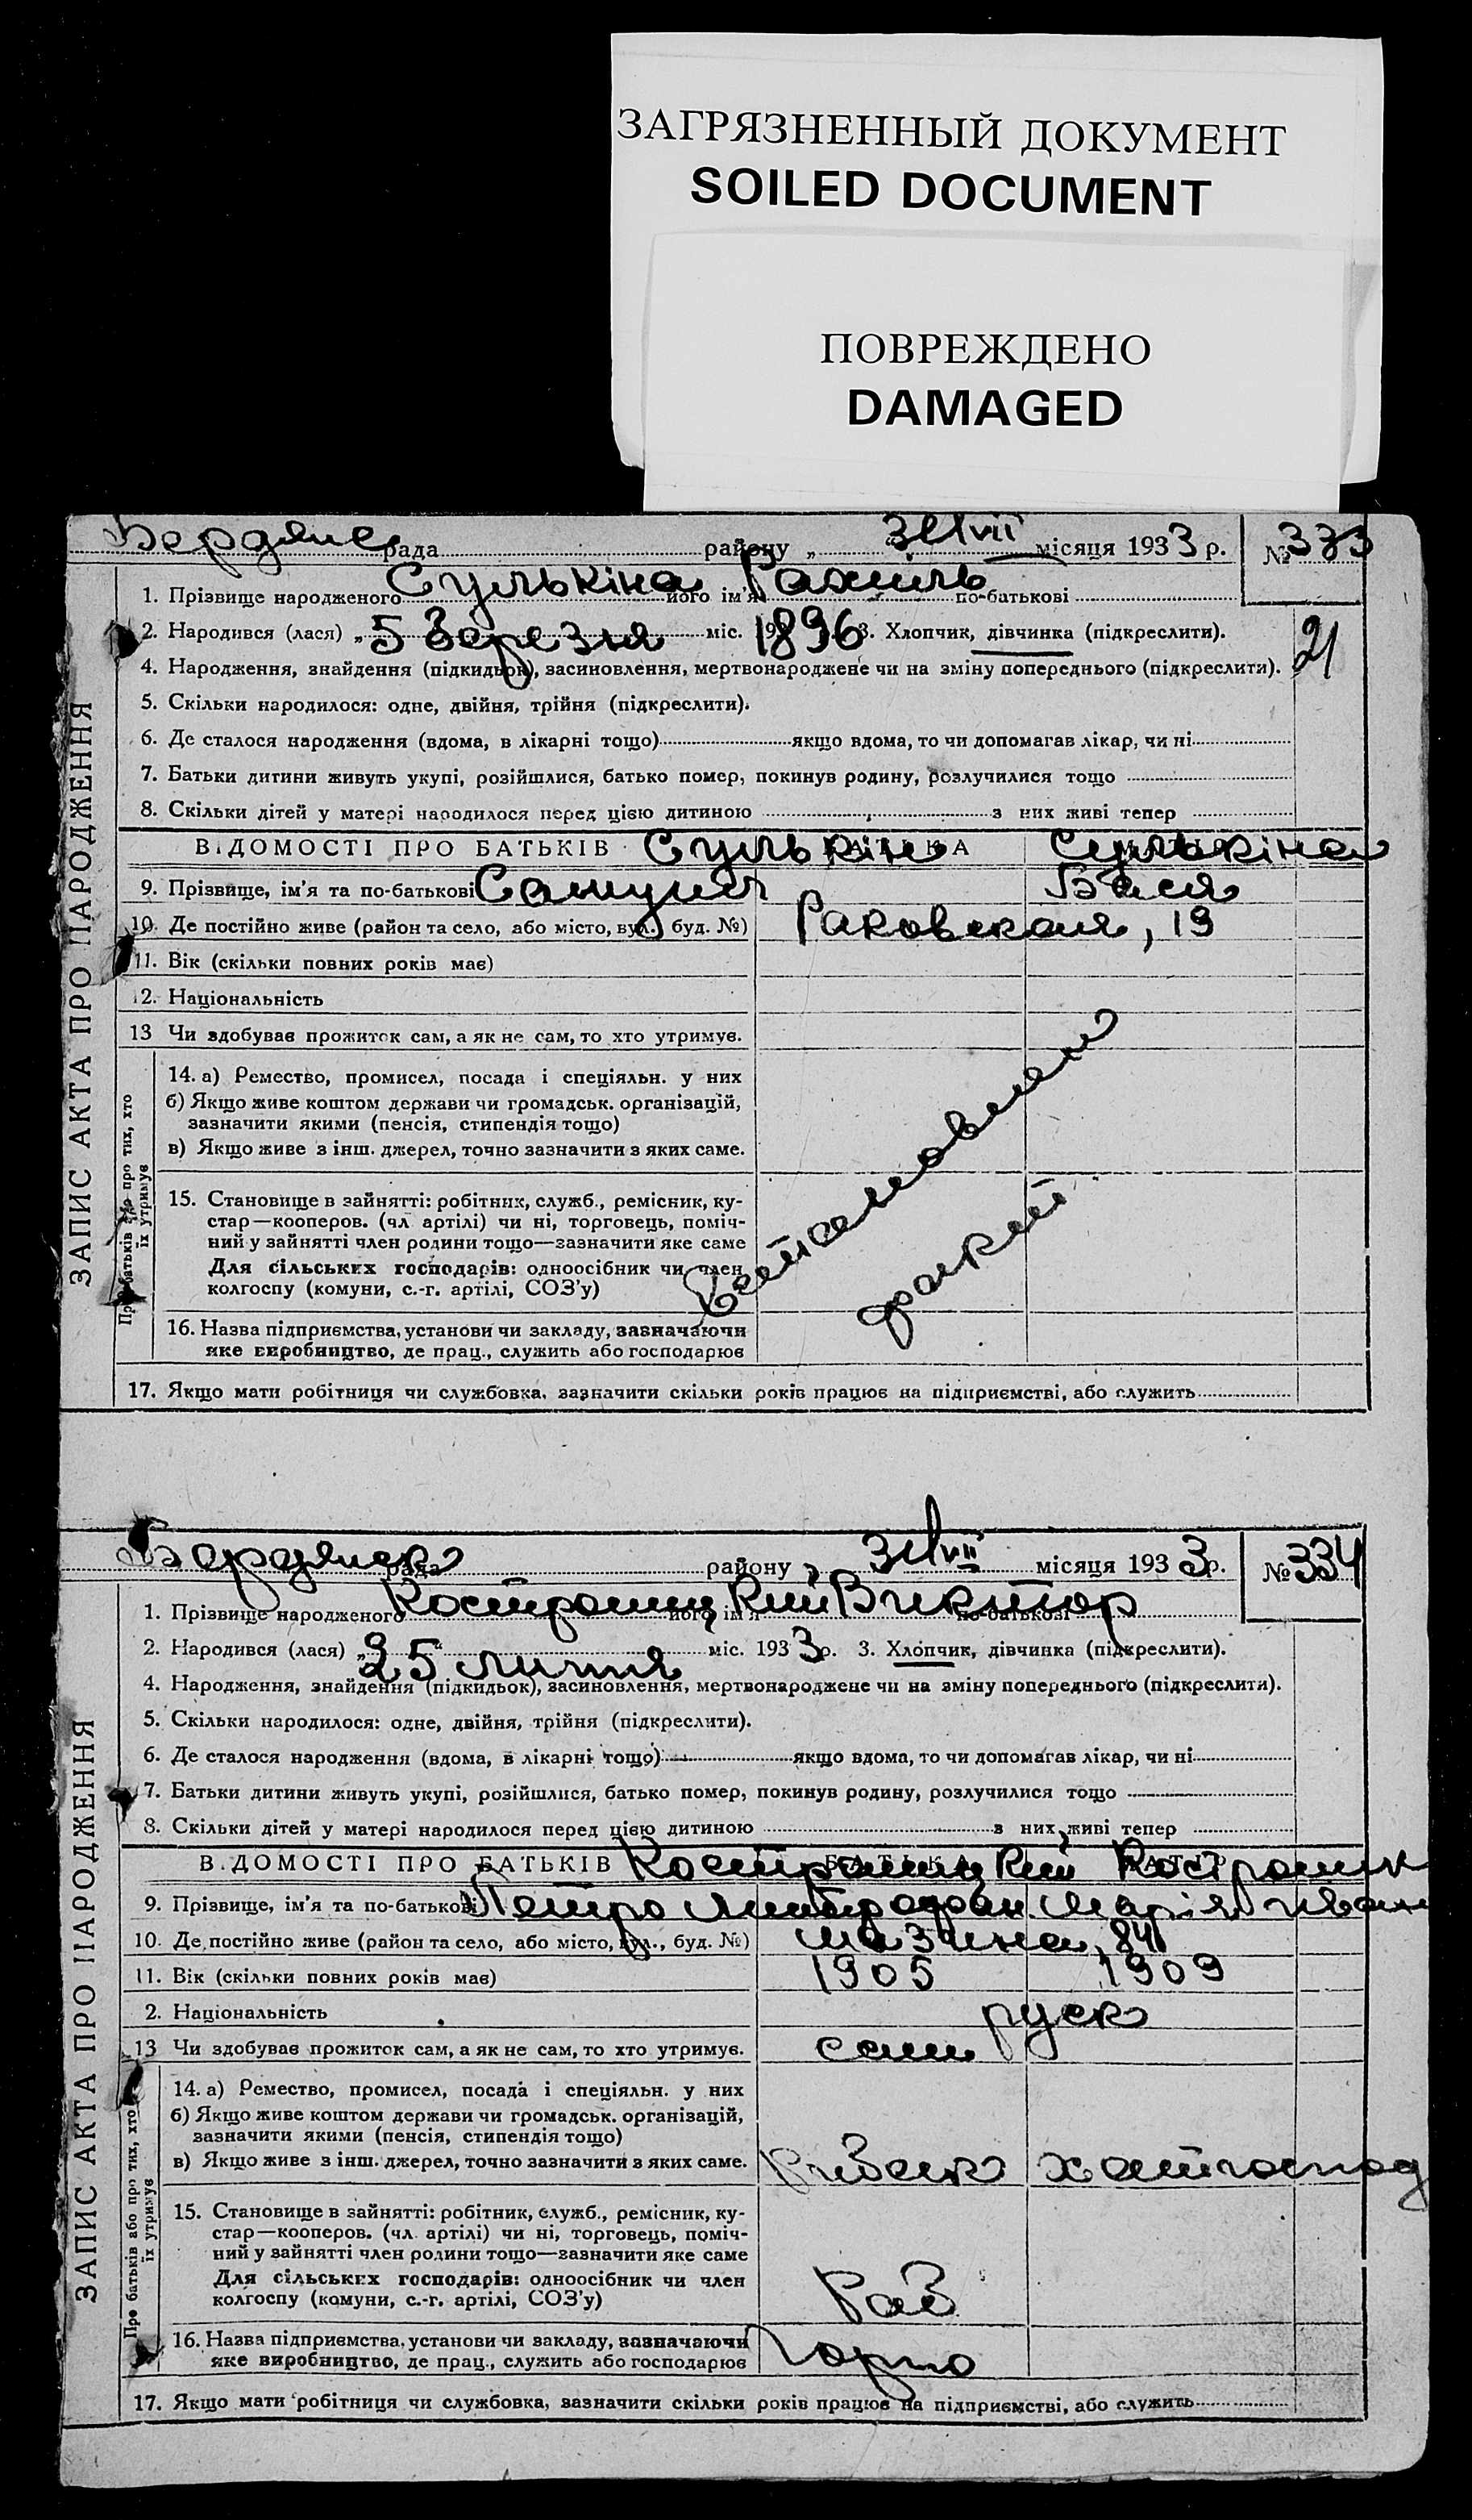 ЗАГРЯЗНЕННЫЙ ДОКУМЕНТ
SOILED DOCUMENT
ПОВРЕЖДЕНО
DAMAGED
ЗАПИС АКТА ПРО НАРОДЖЕННЯ
Бердянс рада району „ 31/VII місяця 1933 р. № 333
1. Прізвище народженого Сулькіна його ім'я Рахиль по-батькові
2. Народився (лася) „ 5 березня міс. 19 1896 3. Хлопчик, дівчинка (підкреслити).
21
4. Народження, знайдення (підкидьок), засиновлення, мертвонароджене чи на зміну попереднього (підкреслити).
5. Скільки народилося: одне, двійня, трійня (підкреслити).
6. Де сталося народження (вдома, в лікарні тощо) якщо вдома, то чи допомагав лікар, чи ні
7. Батьки дитини живуть укупі, розійшлися, батько помер, покинув родину, розлучилися тощо
8. Скільки дітей у матері народилося перед цією дитиною з них живі тепер
ВІДОМОСТІ ПРО БАТЬКІВ Сулькін Сулькіна
9. Прізвище, ім'я та по-батькові Самуил Бася
10. Де постійно живе (район та село, або місто, вул., буд. №) Раковская, 19
11. Вік (скільки повних років має)
12. Національність
13 Чи здобуває прожиток сам, а як не сам, то хто утримує.
Про батьків або про тих, хто їх утримує
14. а) Ремество, промисел, посада і спеціяльн. у них
б) Якщо живе коштом держави чи громадськ. організацій,
зазначити якими (пенсія, стипендія тощо)
в) Якщо живе з інш. джерел, точно зазначити з яких саме.
15. Становище в зайнятті: робітник, служб., ремісник, ку-
стар—кооперов. (чл. артілі) чи ні, торговець, поміч-
ний у зайнятті член родини тощо—зазначити яке саме
Для сільських господарів: одноосібник чи член
колгоспу (комуни, с.-г. артілі, СОЗ'у)
16. Назва підприємства, установи чи закладу, зазначаючи
яке виробництво, де прац., служить або господарює
17. Якщо мати робітниця чи службовка, зазначити скільки років працює на підприємстві, або служить
ЗАПИС АКТА ПРО НАРОДЖЕННЯ
Бердянск рада району „ 31/VII місяця 1933 р. № 334
1. Прізвище народженого Костромицкий його ім'я Виктор по-батькові
2. Народився (лася) „ 25 липня міс. 1933 р. 3. Хлопчик, дівчинка (підкреслити).
4. Народження, знайдення (підкидьок), засиновлення, мертвонароджене чи на зміну попереднього (підкреслити).
5. Скільки народилося: одне, двійня, трійня (підкреслити).
6. Де сталося народження (вдома, в лікарні тощо) якщо вдома, то чи допомагав лікар, чи ні
7. Батьки дитини живуть укупі, розійшлися, батько помер, покинув родину, розлучилися тощо
8. Скільки дітей у матері народилося перед цією дитиною з них живі тепер
ВІДОМОСТІ ПРО БАТЬКІВ Костромицкий Костромик
9. Прізвище, ім'я та по-батькові Петро Митрофан. Марія Иван
10. Де постійно живе (район та село, або місто, вул., буд. №) Мазина, 84
11. Вік (скільки повних років має) 1905 1909
2. Національність руск
13 Чи здобуває прожиток сам, а як не сам, то хто утримує. сам
Про батьків або про тих, хто їх утримує
14. а) Ремество, промисел, посада і спеціяльн. у них
б) Якщо живе коштом держави чи громадськ. організацій,
зазначити якими (пенсія, стипендія тощо)
в) Якщо живе з інш. джерел, точно зазначити з яких саме. рибак хатгоспод
15. Становище в зайнятті: робітник, служб., ремісник, ку-
стар—кооперов. (чл. артілі) чи ні, торговець, поміч-
ний у зайнятті член родини тощо—зазначити яке саме
Для сільських господарів: одноосібник чи член
колгоспу (комуни, с.-г. артілі, СОЗ'у) Раб
16. Назва підприємства, установи чи закладу, зазначаючи
яке виробництво, де прац., служить або господарює
17. Якщо мати робітниця чи службовка, зазначити скільки років працює на підприємстві, або служить